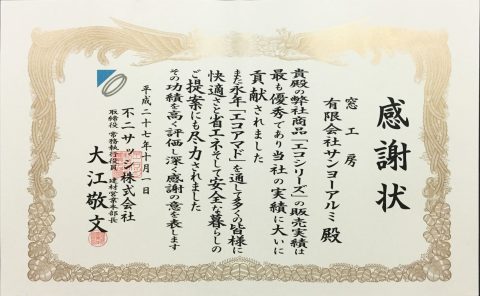 感謝状
窓工房
有限会社サンヨーアルミ殿
貴殿の弊社商品「エコシリーズ」の販売実績は
最も優秀であり当社の実績に大いに
貢献されました
また永年「エコアマド」を通して多くの皆様に
快適さと省エネそして安全な暮らしの
ご提案にも尽力されました
その功績を高く評価し深く感謝の意を表します
平成二十七年十月一日
不二サッシ株式会社
取締役 常務執行役員 建材営業本部長
大江敬文